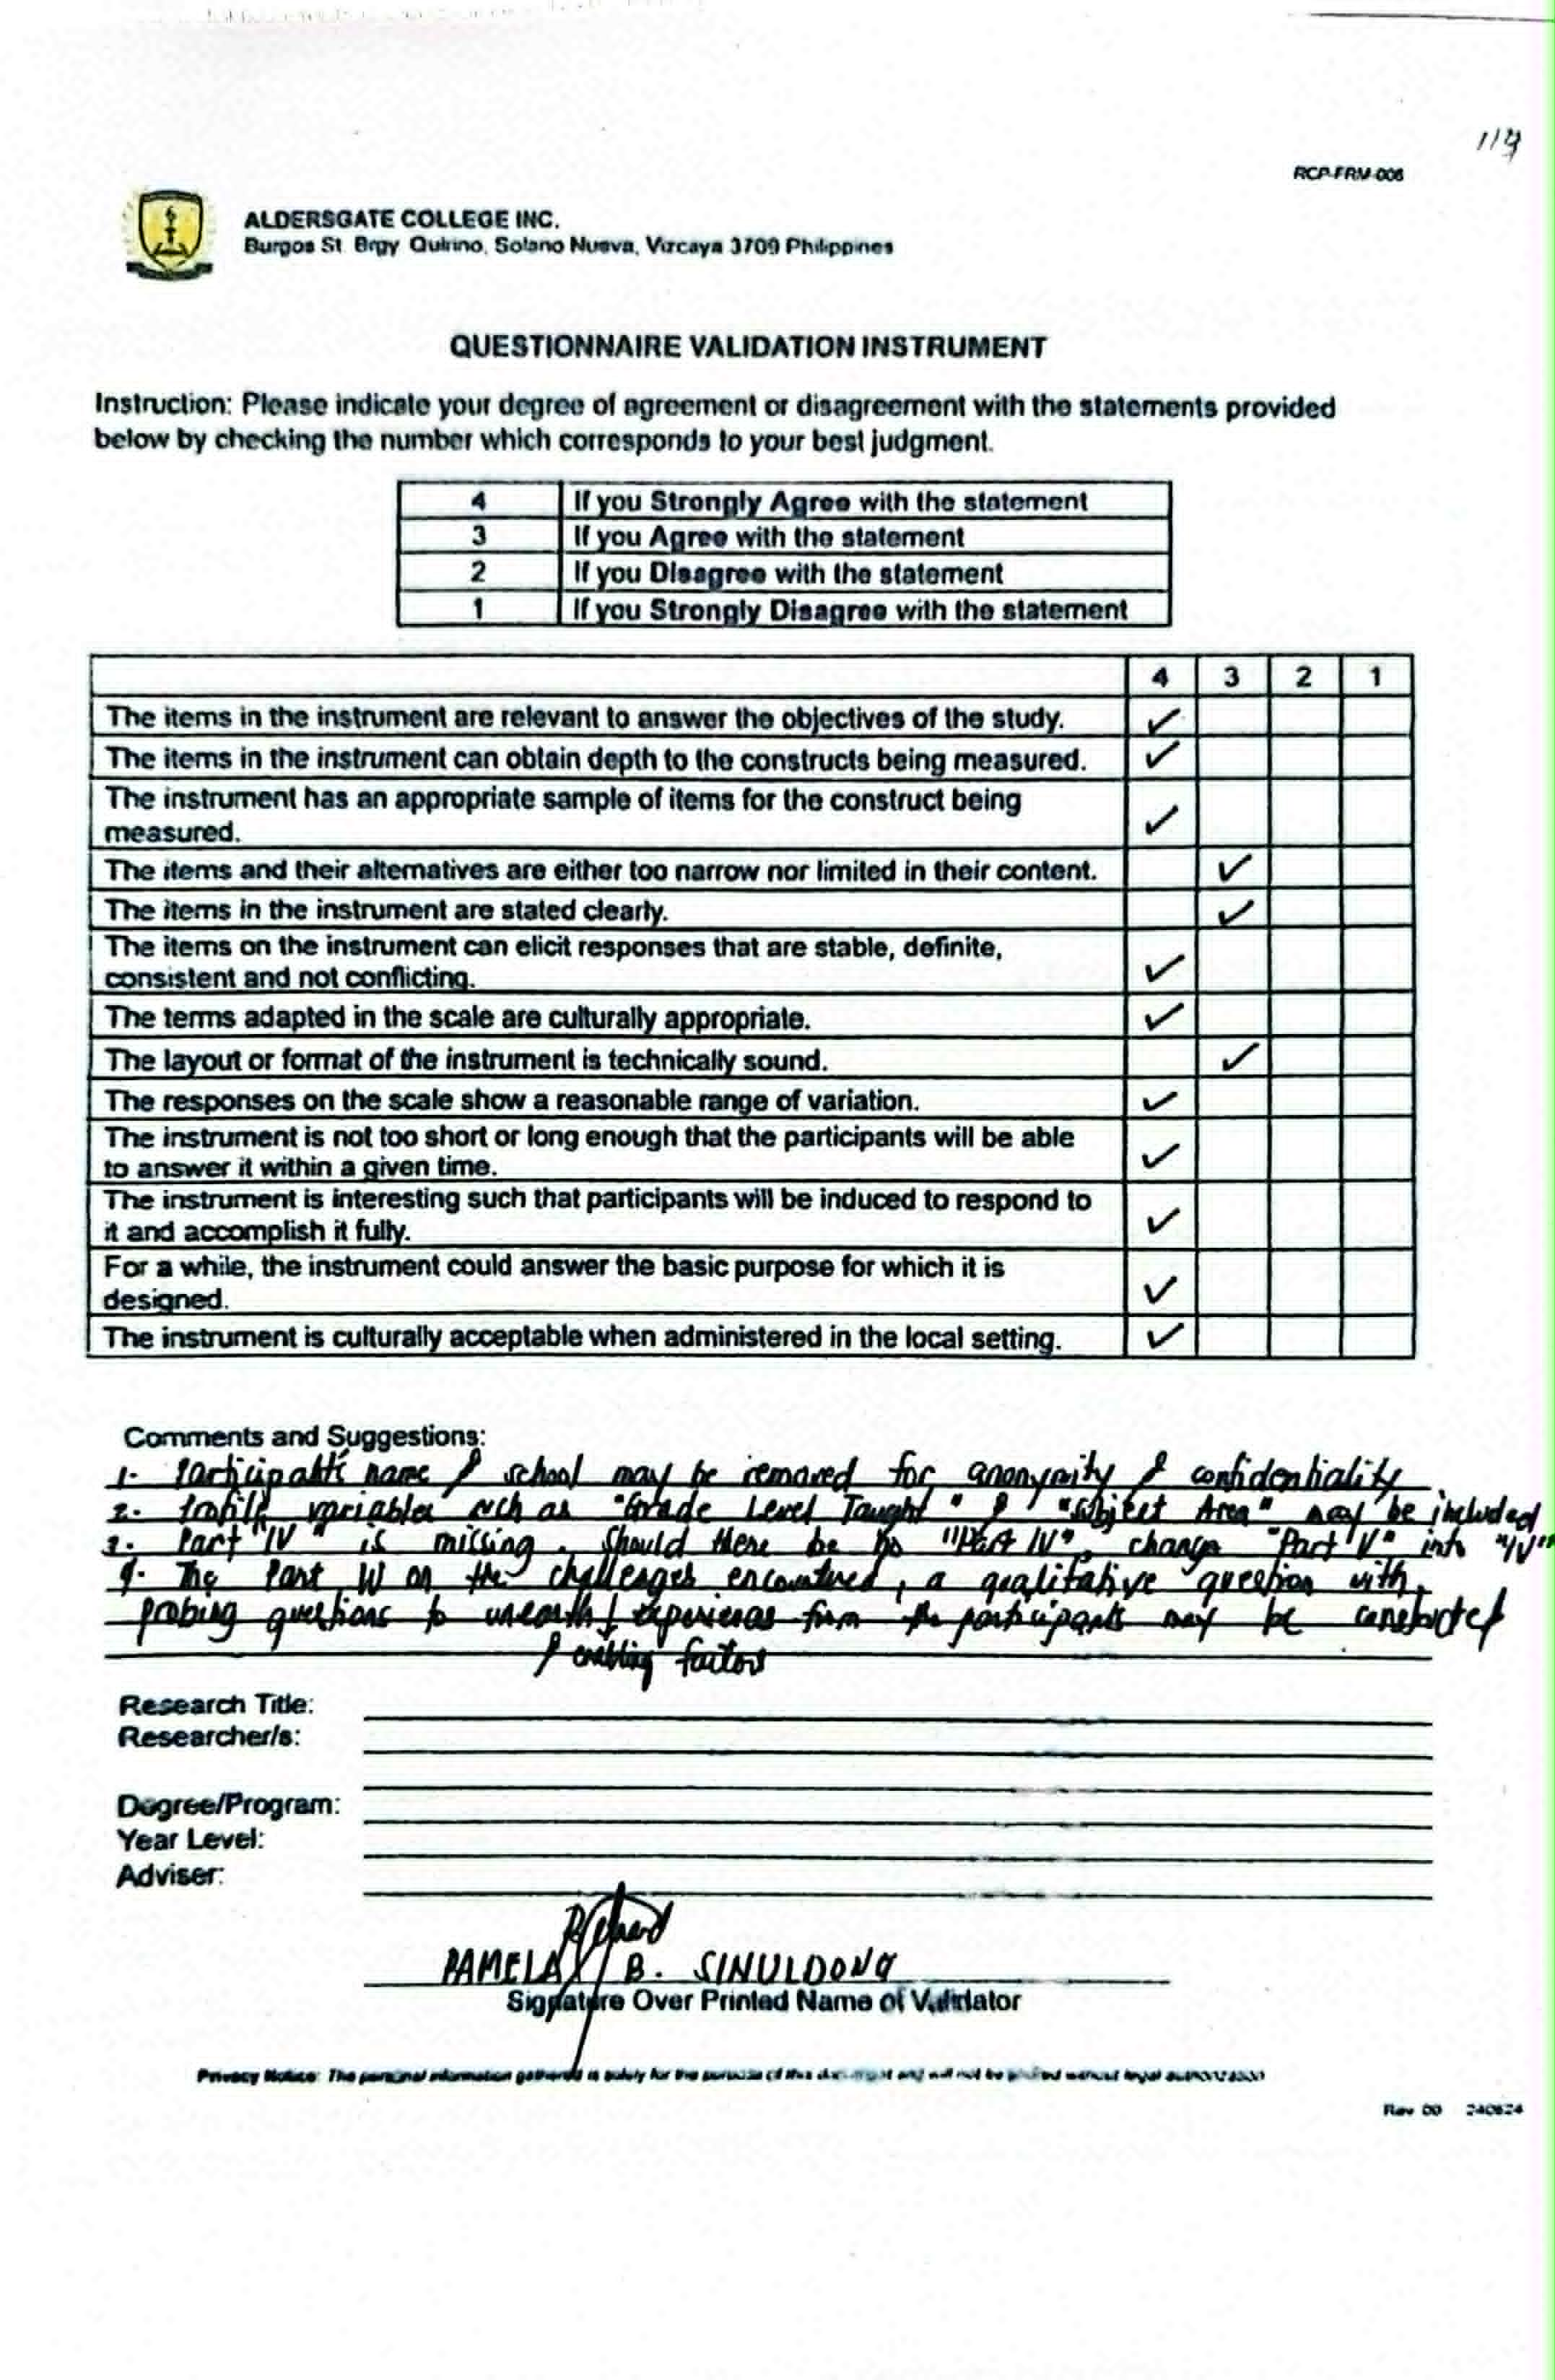 RCP-FRM-006
ALDERSGATE COLLEGE INC.
Burgos St. Brgy Quirino, Solano Nueva, Vizcaya 3709 Philippines
QUESTIONNAIRE VALIDATION INSTRUMENT
Instruction: Please indicate your degree of agreement or disagreement with the statements provided
below by checking the number which corresponds to your best judgment.
4 If you Strongly Agree with the statement
3 If you Agree with the statement
2 If you Disagree with the statement
1 If you Strongly Disagree with the statement
4 3 2 1
The items in the instrument are relevant to answer the objectives of the study. ✓
The items in the instrument can obtain depth to the constructs being measured. ✓
The instrument has an appropriate sample of items for the construct being
measured. ✓
The items and their alternatives are either too narrow nor limited in their content. ✓
The items in the instrument are stated clearly. ✓
The items on the instrument can elicit responses that are stable, definite,
consistent and not conflicting. ✓
The terms adapted in the scale are culturally appropriate. ✓
The layout or format of the instrument is technically sound. ✓
The responses on the scale show a reasonable range of variation. ✓
The instrument is not too short or long enough that the participants will be able
to answer it within a given time. ✓
The instrument is interesting such that participants will be induced to respond to
it and accomplish it fully. ✓
For a while, the instrument could answer the basic purpose for which it is
designed. ✓
The instrument is culturally acceptable when administered in the local setting. ✓
Comments and Suggestions:
1. Participants' name & school may be removed for anonymity & confidentiality
2. Profile variables such as "Grade Level Taught" & "Subject Area" may be included
3. Part "IV" is missing. Should there be no "Part IV", change "Part V" into "IV"
4. The Part IV on the challenges encountered, a qualitative question with
probing questions to unearth experiences from the participants may be constructed
& enabling factors
Research Title:
Researcher/s:
Degree/Program:
Year Level:
Adviser:
PAMELA B. SINULDONG
Signature Over Printed Name of Validator
Privacy Notice: The personal information gathered is solely for the purpose of this document and will not be shared without legal authorization
Rev 00 240624